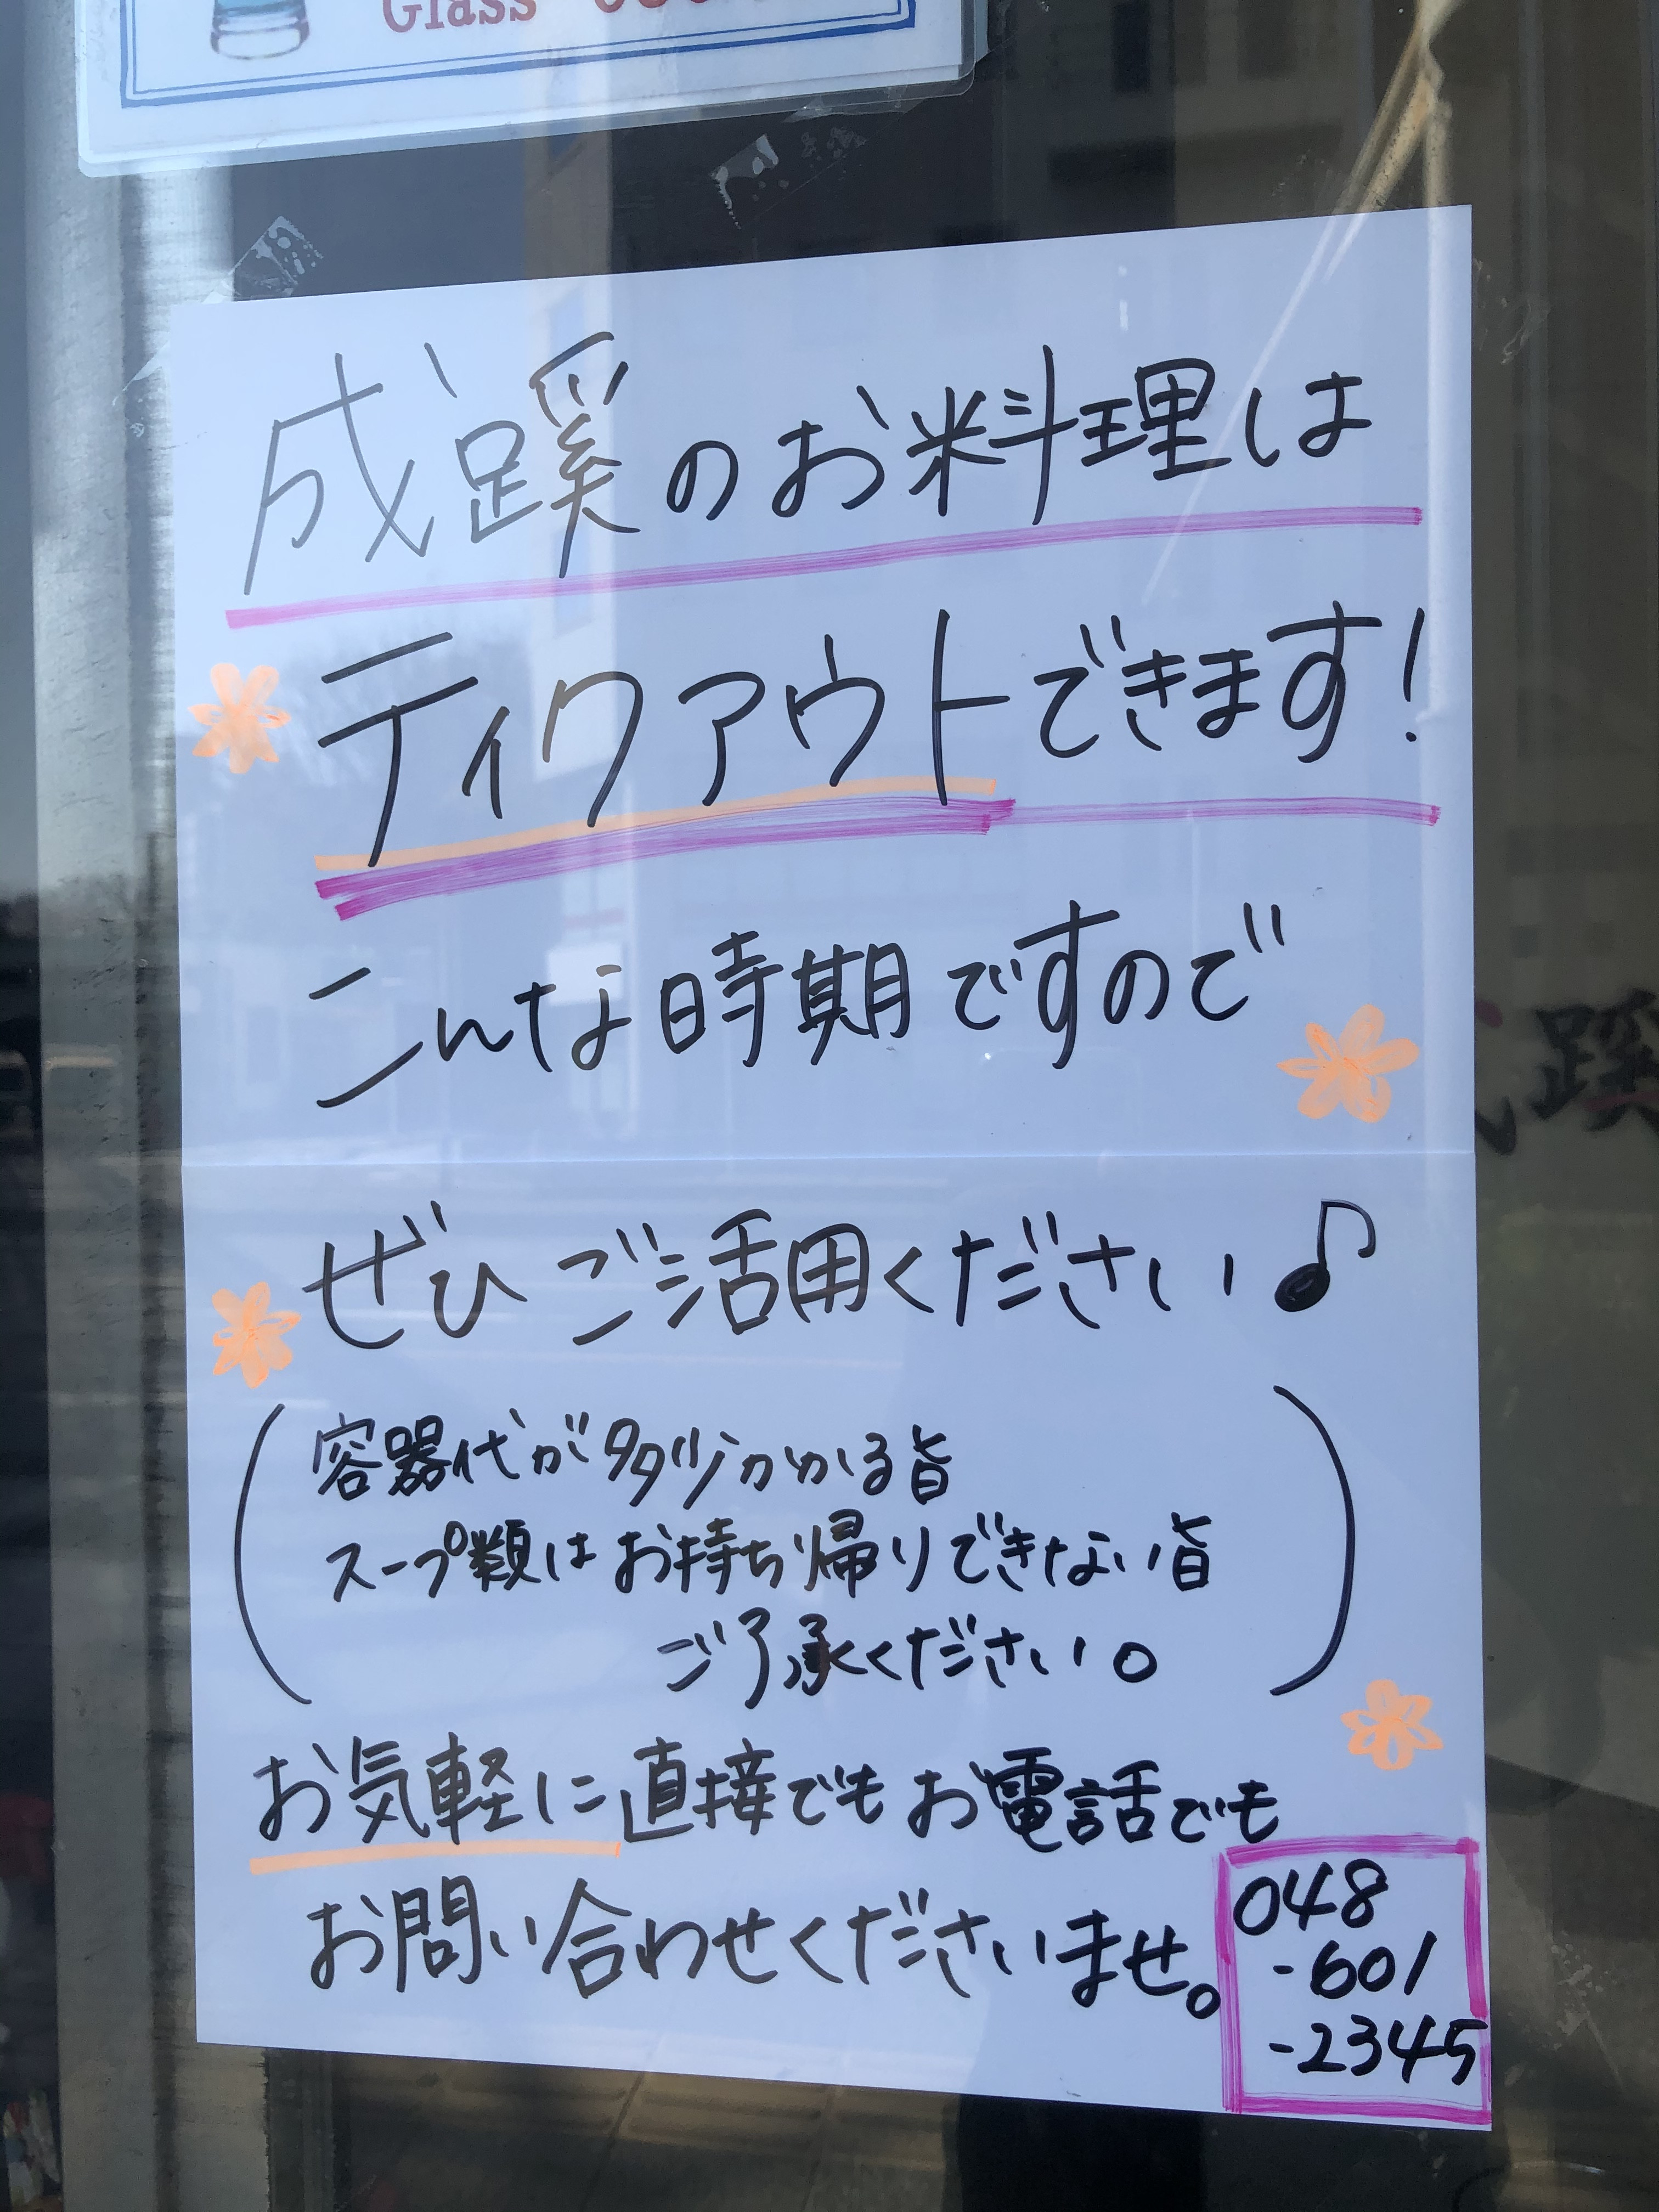 Glass
成蹊のお料理は
テイクアウトできます!
こんな時期ですので
ぜひご活用ください♪
(容器代が多少かかる旨
スープ類はお持ち帰りできない旨
ご了承ください。)
お気軽に直接でもお電話でも
お問い合わせくださいませ。
048
-601
-2345
蹊